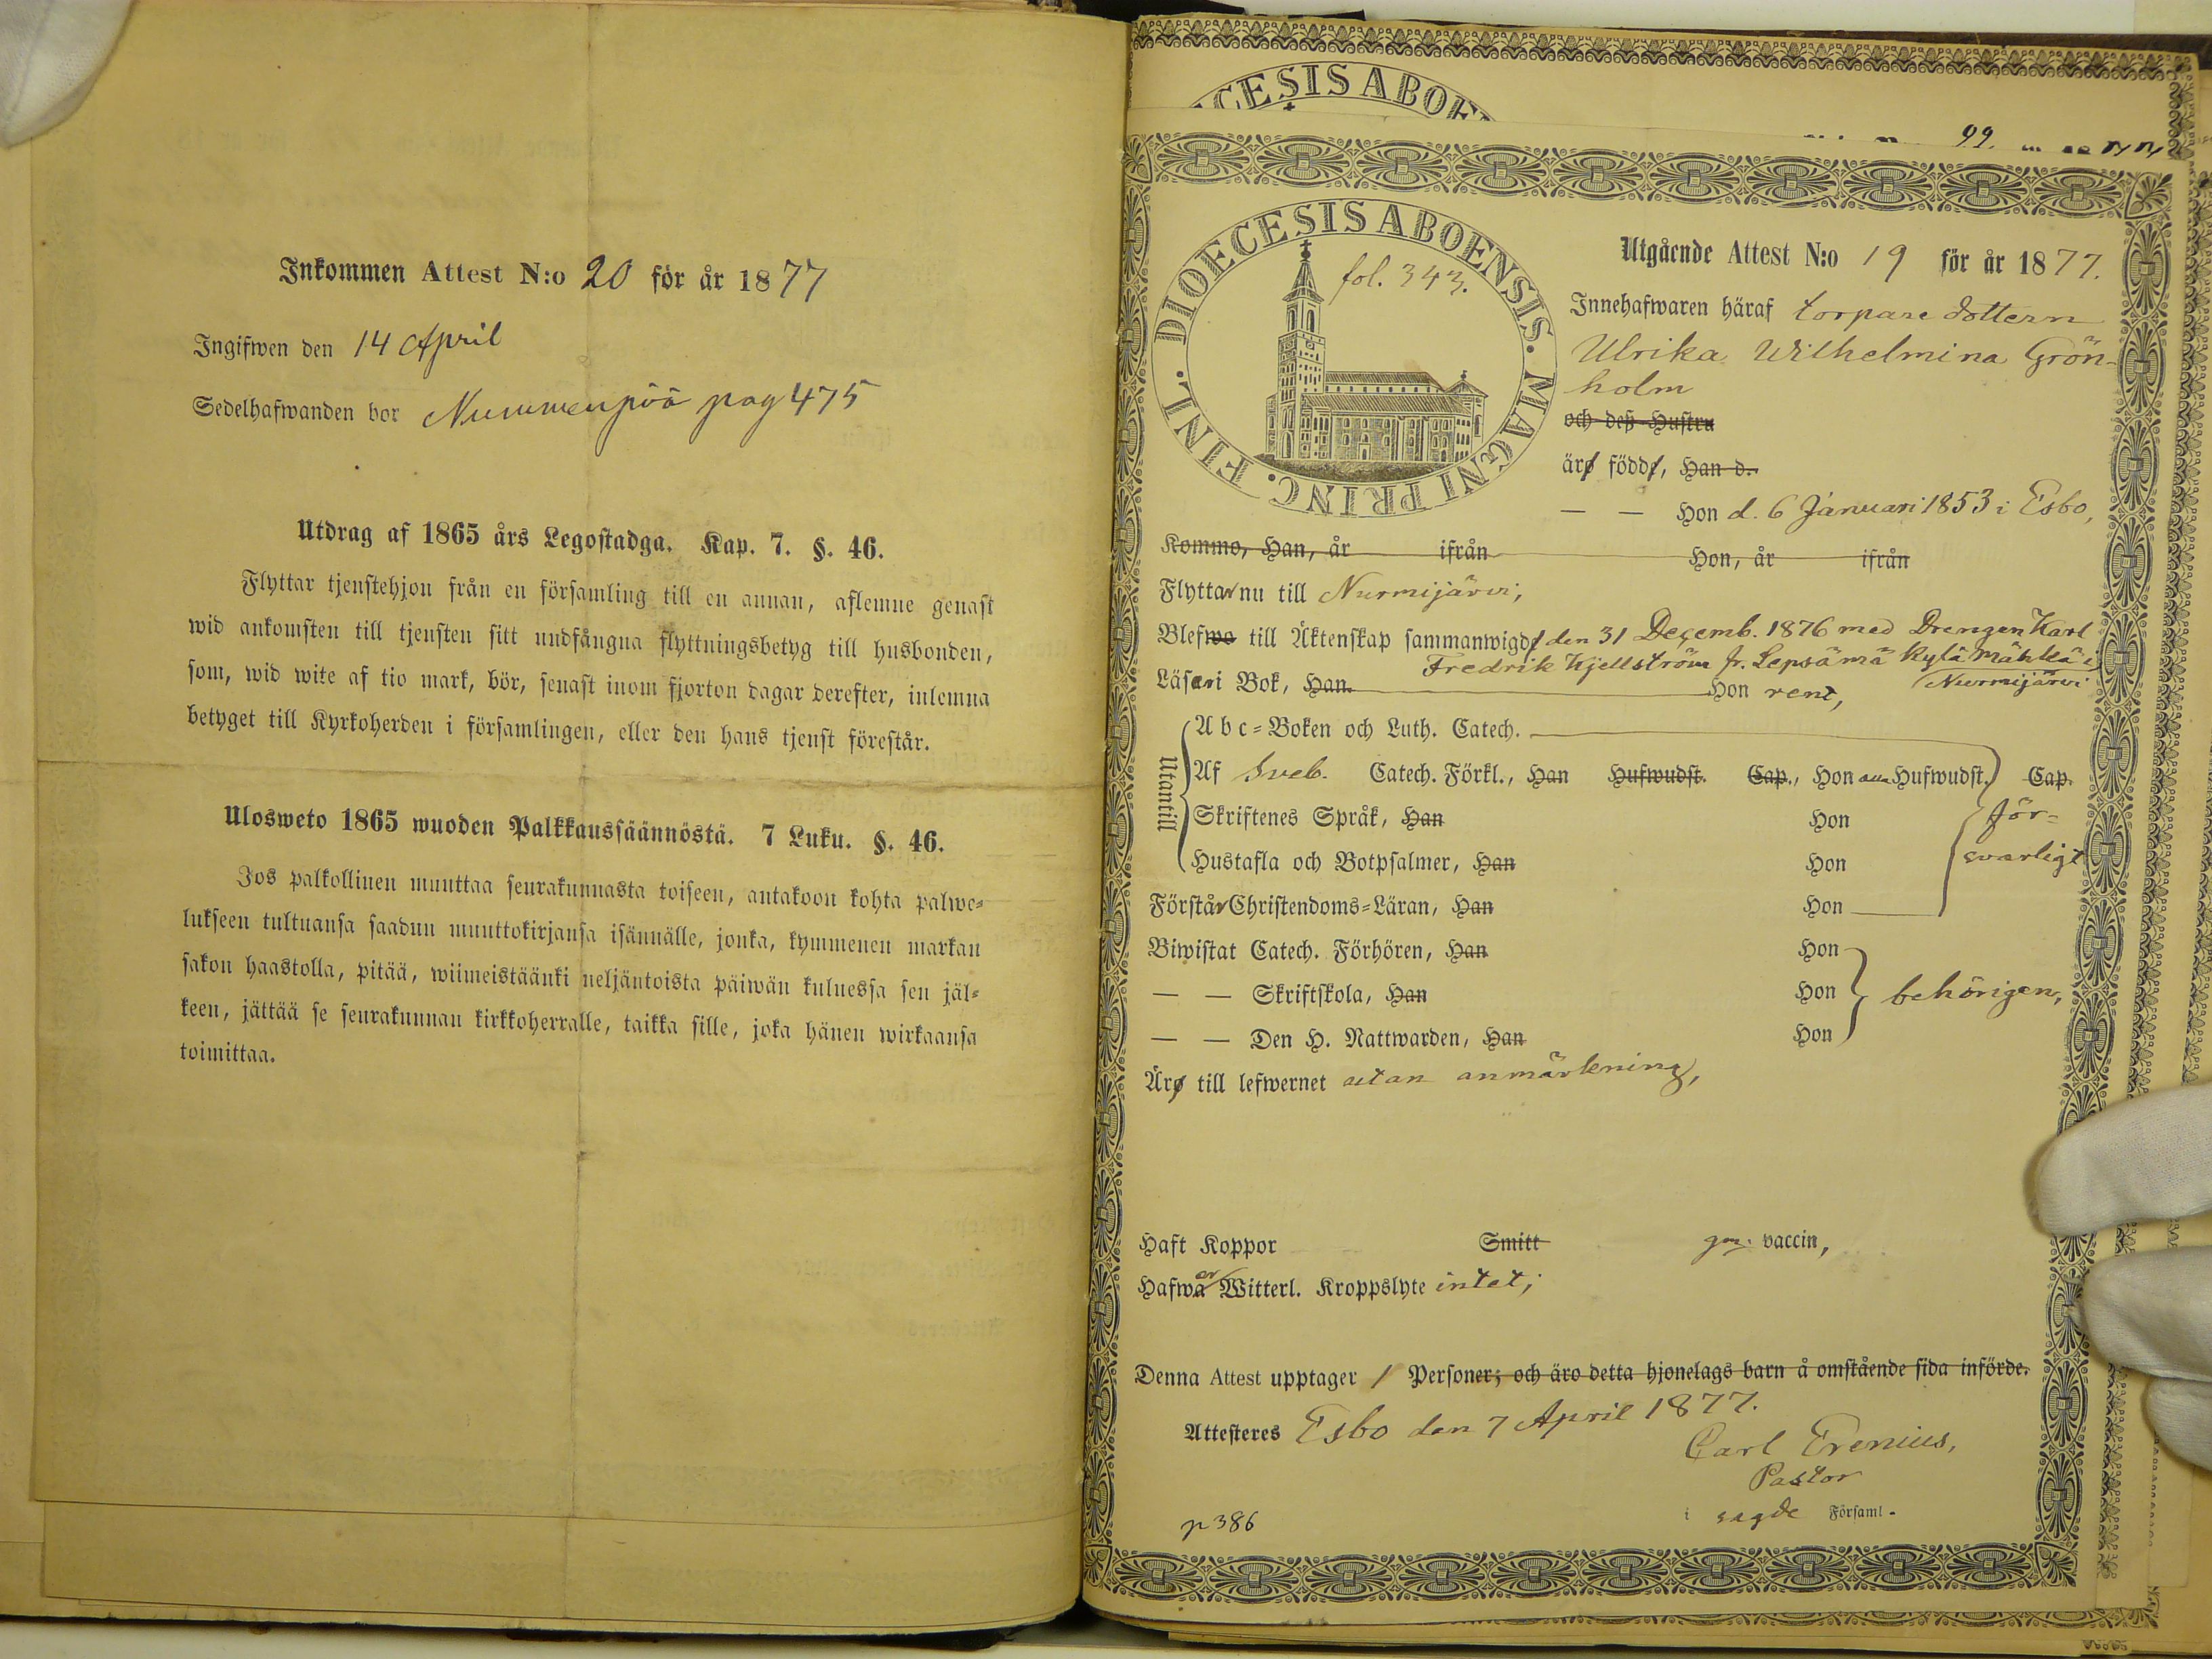 Inkommen Attest N:o 20 för år 1877
Ingifwen den 14 April
Sedelhafwanden bor Nummenpää pag 475
Utdrag af 1865 års Legostadga. Kap. 7. §. 46.
Flyttar tjenstehjon från en församling till en annan, aflemne genast
wid ankomsten till tjensten sitt undfångna flyttningsbetyg till husbonden,
som, wid wite af tio mark, bör, senast inom fjorton dagar derefter, inlemna
betyget till Kyrkoherden i församlingen, eller den hans tjenst förestår.
Ulosweto 1865 wuoden Palkkaussäännöstä. 7 Luku. §. 46.
Jos palkollinen muuttaa seurakunnasta toiseen, antakoon kohta palwe=
lukseen tultuansa saadun muuttokirjansa isännälle, jonka, kymmenen markan
sakon haastolla, pitää, wiimeistäänki neljäntoista päiwän kuluessa sen jäl=
keen, jättää se seurakunnan kirkkoherralle, taikka sille, joka hänen wirkaansa
toimittaa.
CESIS ABOE
99.
DIOECESIS ABOENSIS. MAGNI PRINC. FINL.
fol. 343.
Utgående Attest N:o 19 för år 1877.
Innehafwaren häraf torpare dottern
Ulrika Wilhelmina Grön-
holm
och deß Hustru
äro födde, Han d.
— — Hon d. 6 Januari 1853 i Esbo,
Kommo, Han, år ifrån Hon, år ifrån
Flyttar nu till Nurmijärvi,
Blefwo till Äktenskap sammanwigde den 31 Decemb. 1876 med Drengen Karl
Fredrik Kjellström fr. Lepsämä Kylä Mähkä i
Nurmijärvi
Läsa i Bok, Han Hon rent,
Utantill
A b c=Boken och Luth. Catech.
Af Sveb. Catech. Förkl., Han Hufwudst. Cap., Hon alla Hufwudst. Cap.
Skriftenes Språk, Han Hon för=
svarligt
Hustafla och Botpsalmer, Han Hon
Förstår Christendoms=Läran, Han Hon
Biwistat Catech. Förhören, Han Hon
— — Skriftskola, Han Hon behörigen,
— — Den H. Nattwarden, Han Hon
Äro till lefwernet utan anmärkning,
Haft Koppor Smitt gm. vaccin,
Hafwa ar Witterl. Kroppslyte intet;
Denna Attest upptager 1 Personer; och äro detta hjonelags barn å omstående sida införde.
Attesteres Esbo den 7 April 1877.
Carl Erenius,
Pastor
i sagde Församl.
p 386